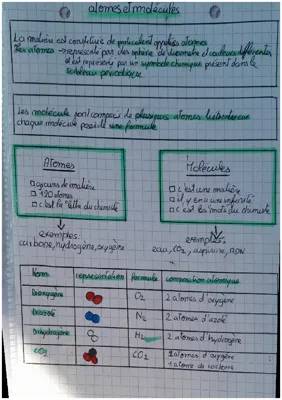 atomes et molécules
La matière est constituée de particules appelées atomes
Les atomes représentés par des sphères de diamètre et couleurs différentes
et est représenté par un symbole chimique présent dans le
tableau périodique
Les molécules sont composées de plusieurs atomes
chaque molécule possède une formule
Atomes
grains de matière
120 atomes
c'est la lettre du chimiste
exemples:
carbone, hydrogène, oxygène
Molécules
c'est une matière
il y en a une infinité
c'est les mots du chimiste
exemples:
eau, CO2, aspirine, ADN
Noms représentation formule composition atomique
Dioxygène O2 2 atomes d'oxygène
Diazote N2 2 atomes d'azote
Dihydrogène H2 2 atomes d'hydrogène
CO2 CO2 2 atomes d'oxygène
1 atome de carbone